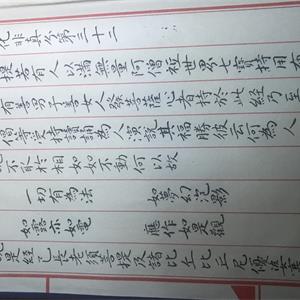 化非真分第三十二
提若有人以滿無量阿僧祇世界七寶持用
有善男子善女人發菩薩心者持於此經乃至
偈等受持讀誦為人演說其福勝彼云何為人
不取於相如如不動何以故
一切有為法 如夢幻泡影
如露亦如電 應作如是觀
說是經已長老須菩提及諸比丘比丘尼優婆塞